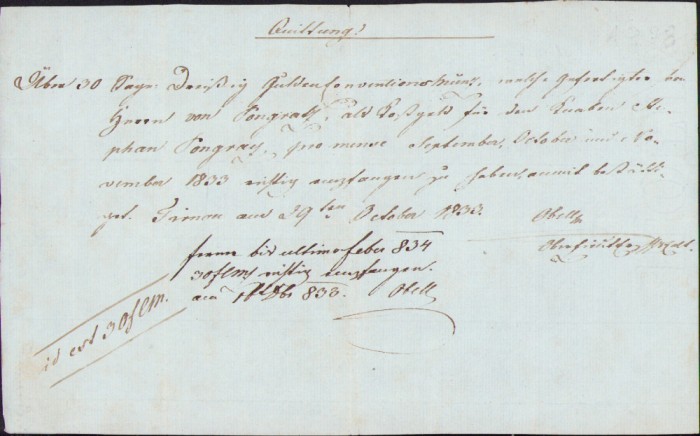 Quittung.
Über 30 Sage Dreißig Gulden Conventionsmünz, welche Gefertigter von
Herrn von Pongratz, als Kostgeld für den Knaben Ste-
phan Pongraz, pro mense September, October und No-
vember 1833 richtig empfangen zu haben, anmit bestätti-
get. am 29ten October 1833. Obell
ferner bis ultimo Feber 834
30 flCMz richtig empfangen.
am 833. Obell
id est 30 flCM.